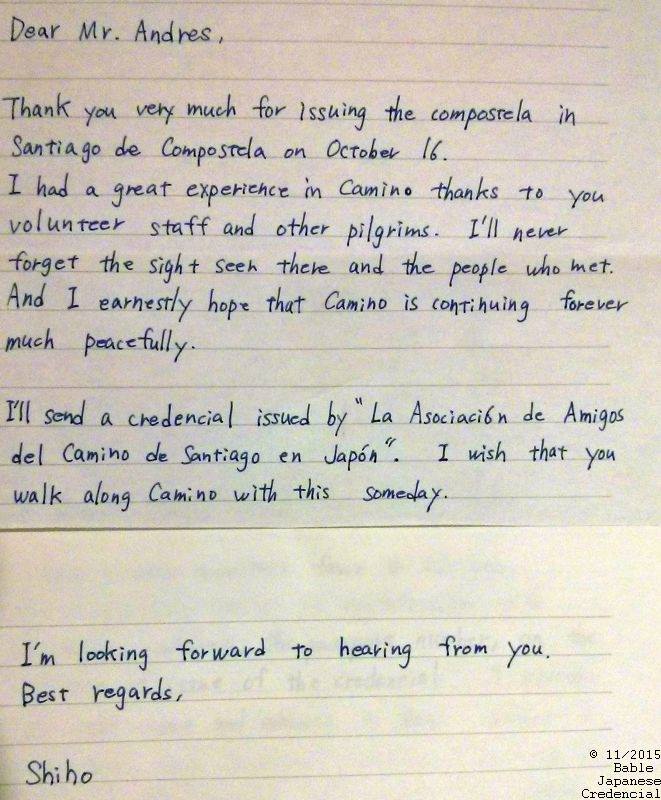 Dear Mr. Andres,
Thank you very much for issuing the compostela in
Santiago de Compostela on October 16.
I had a great experience in Camino thanks to you
volunteer staff and other pilgrims. I'll never
forget the sight seen there and the people who met.
And I earnestly hope that Camino is continuing forever
much peacefully.
I'll send a credencial issued by "La Asociación de Amigos
del Camino de Santiago en Japón". I wish that you
walk along Camino with this someday.
I'm looking forward to hearing from you.
Best regards,
Shiho
© 11/2015
Bable
Japanese
Credencial